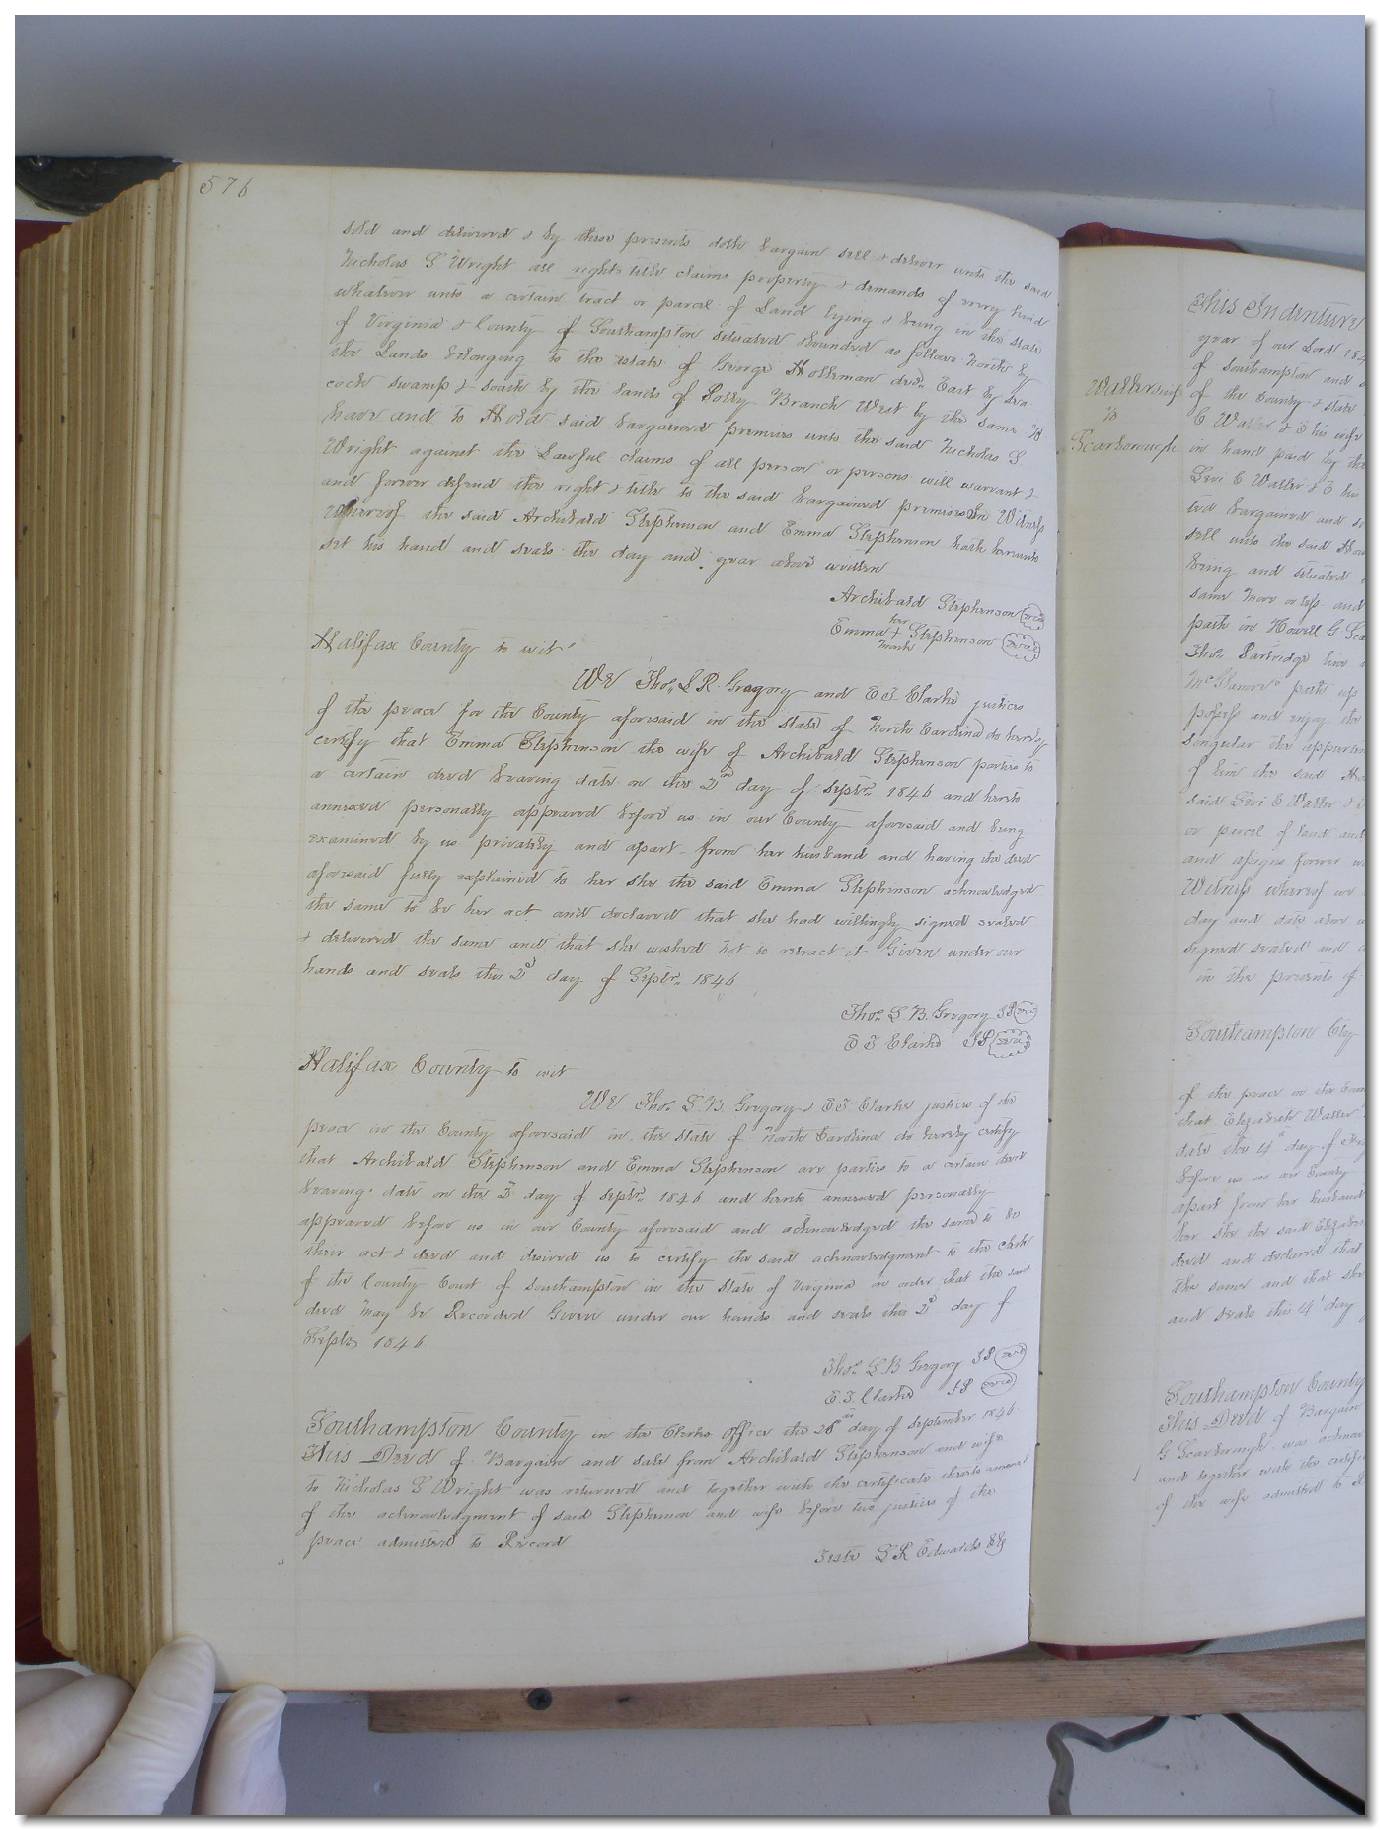 576
sold and delivered & by these presents doth bargain sell & deliver unto the said
Nicholas S Wright all right title claims property & demands of every kind
whatsoever unto a certain tract or parcel of Land lying & being in the State
of Virginia & County of Southampton situated & bounded as follows North by
the Lands belonging to the estate of George Holleman decd. East by sea
cock swamp & South by the lands of Polly Branch West by the same To
have and to Hold said bargained premises unto the said Nicholas S
Wright against the Lawful claims of all person or persons will warrant &
and forever defend the right & title to the said bargained premises In Witness
Whereof the said Archibald Stephenson and Emma Stephenson hath hereunto
set his hand and seals the day and year above written
Archibald Stephenson seal
her
Emma + Stephenson seal
mark
Halifax County to wit
We Thos. L R. Gregory and E T Clarke justices
of the peace for the County aforesaid in the State of North Carolina do hereby
certify that Emma Stephenson the wife of Archibald Stephenson parties to
a certain deed bearing date on the 2nd day of Septr. 1846 and hereto
annexed personally appeared before us in our County aforesaid and being
examined by us privately and apart from her husband and having the deed
aforesaid fully explained to her she the said Emma Stephenson acknowledged
the same to be her act and declared that she had willingly signed sealed
& delivered the same and that she wished not to retract it Given under our
hands and seals this 2d day of Septr. 1846
Thos. L B. Gregory JP seal
E T Clarke JP seal
Halifax County to wit
We Thos. L B. Gregory & E T Clarke justices of the
peace in the County aforesaid in the State of North Carolina do hereby certify
that Archibald Stephenson and Emma Stephenson are parties to a certain deed
bearing date on the 2 day of Septr. 1846 and hereto annexed personally
appeared before us in our County aforesaid and acknowledged the same to be
their act & deed and desired us to certify the said acknowledgment to the Clerk
of the County Court of Southampton in the State of Virginia in order that the said
deed may be Recorded Given under our hands and seals this 2d day of
Septr 1846
Thos. L B Gregory JP seal
E T. Clarke JP seal
Southampton County in the Clerks office the 26th day of September 1846
This Deed of Bargain and sale from Archibald Stephenson and wife
to Nicholas S Wright was returned and together with the certificate thereto annexed
of the acknowledgment of said Stephenson and wife before two justices of the
peace admitted to Record
Teste L R Edwards Clk
to
Scarborough
This Indenture
year of our Lord 184
of Southampton and
of the County & state
in hand paid by the
Levi C Waller & E his
ted bargained and
sell unto the said
being and situated
same more or less and
path in Howell G
Thos. Partridge line
path up
possess and enjoy the
singular the
of him the said
said Levi C Waller &
or parcel of land and
and assigns forever
Witness whereof we
day and date above
signed sealed and
in the presents of
Southampton Cty
of the peace in the
that Elizabeth Waller
date the 14th day of
before us in our County
apart from her husband
her she the said
deed and declared that
the same and that she
and seals this 14 day
Southampton County
This Deed of Bargain
G Scarborough was
and together with the
of the wife admitted to